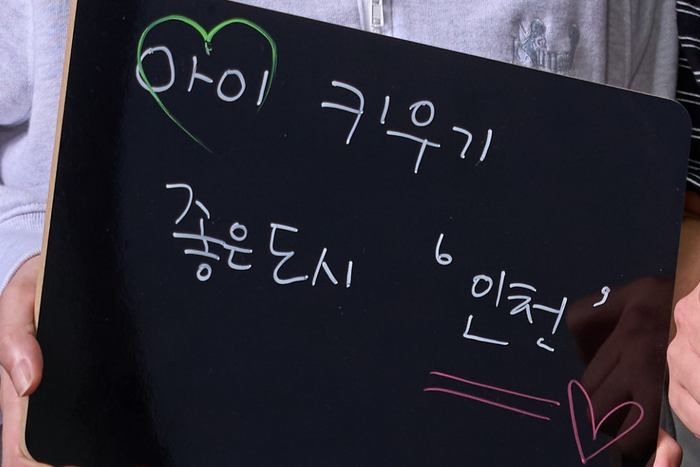 아이 키우기
좋은도시 '인천'